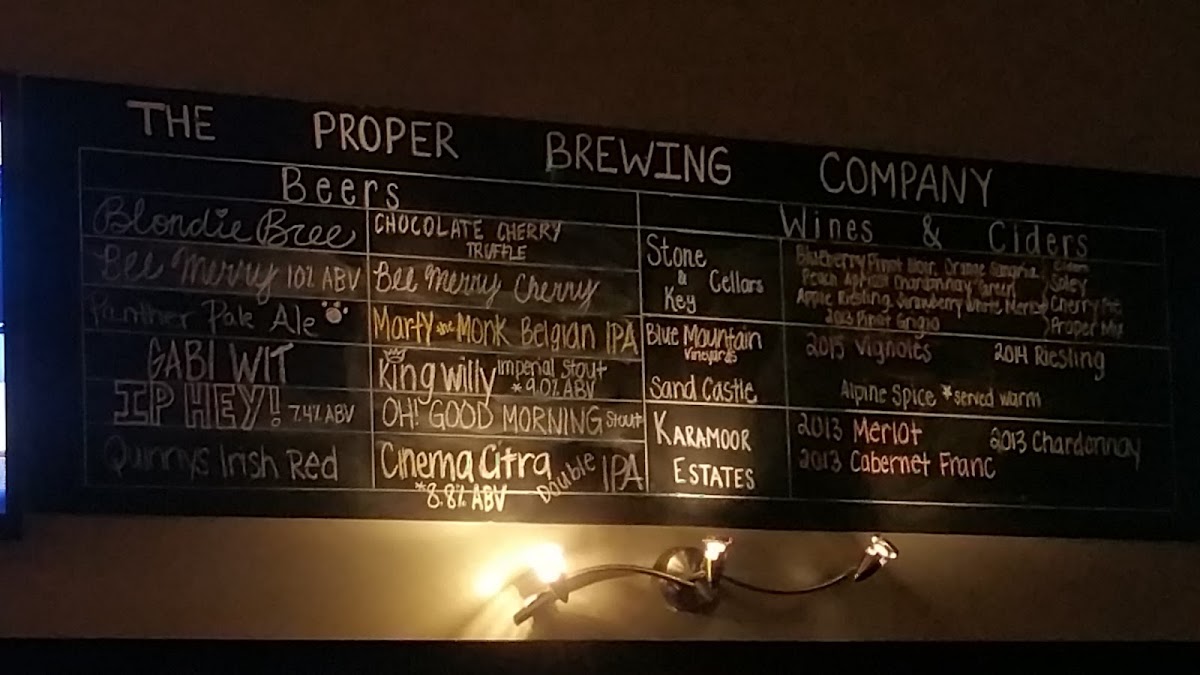 THE PROPER BREWING COMPANY
Beers
Blondie Bree
Bee Merry 10% ABV
Panther Pale Ale
GABI WIT
IP HEY! 7.4% ABV
Quinnys Irish Red
CHOCOLATE CHERRY
TRUFFLE
Bee Merry Cherry
Marty the Monk Belgian IPA
King Willy Imperial Stout
*9.0% ABV
OH! GOOD MORNING Stout
Cinema Citra Double IPA
*8.8% ABV
Wines & Ciders
Stone
& Cellars
Key
Blueberry Pinot Noir, Orange Sangria
Peach Apricot Chardonnay
Apple Riesling, Strawberry White Merlot
2013 Pinot Grigio
Cherry
Proper
Blue Mountain
Vineyards
2015 Vignoles 2014 Riesling
Sand Castle
Alpine Spice *served warm
KARAMOOR
ESTATES
2013 Merlot 2013 Chardonnay
2013 Cabernet Franc